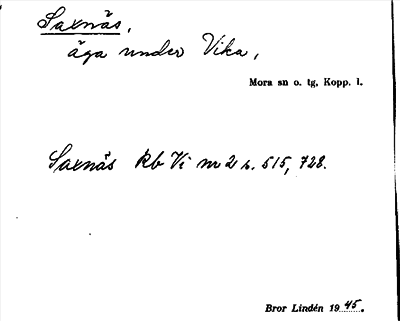 Saxnäs,
äga under Vika,
Mora sn o. tg, Kopp. l.
Saxnäs Rb Vi nr 2 s. 515, 728.
Bror Lindén 1945.